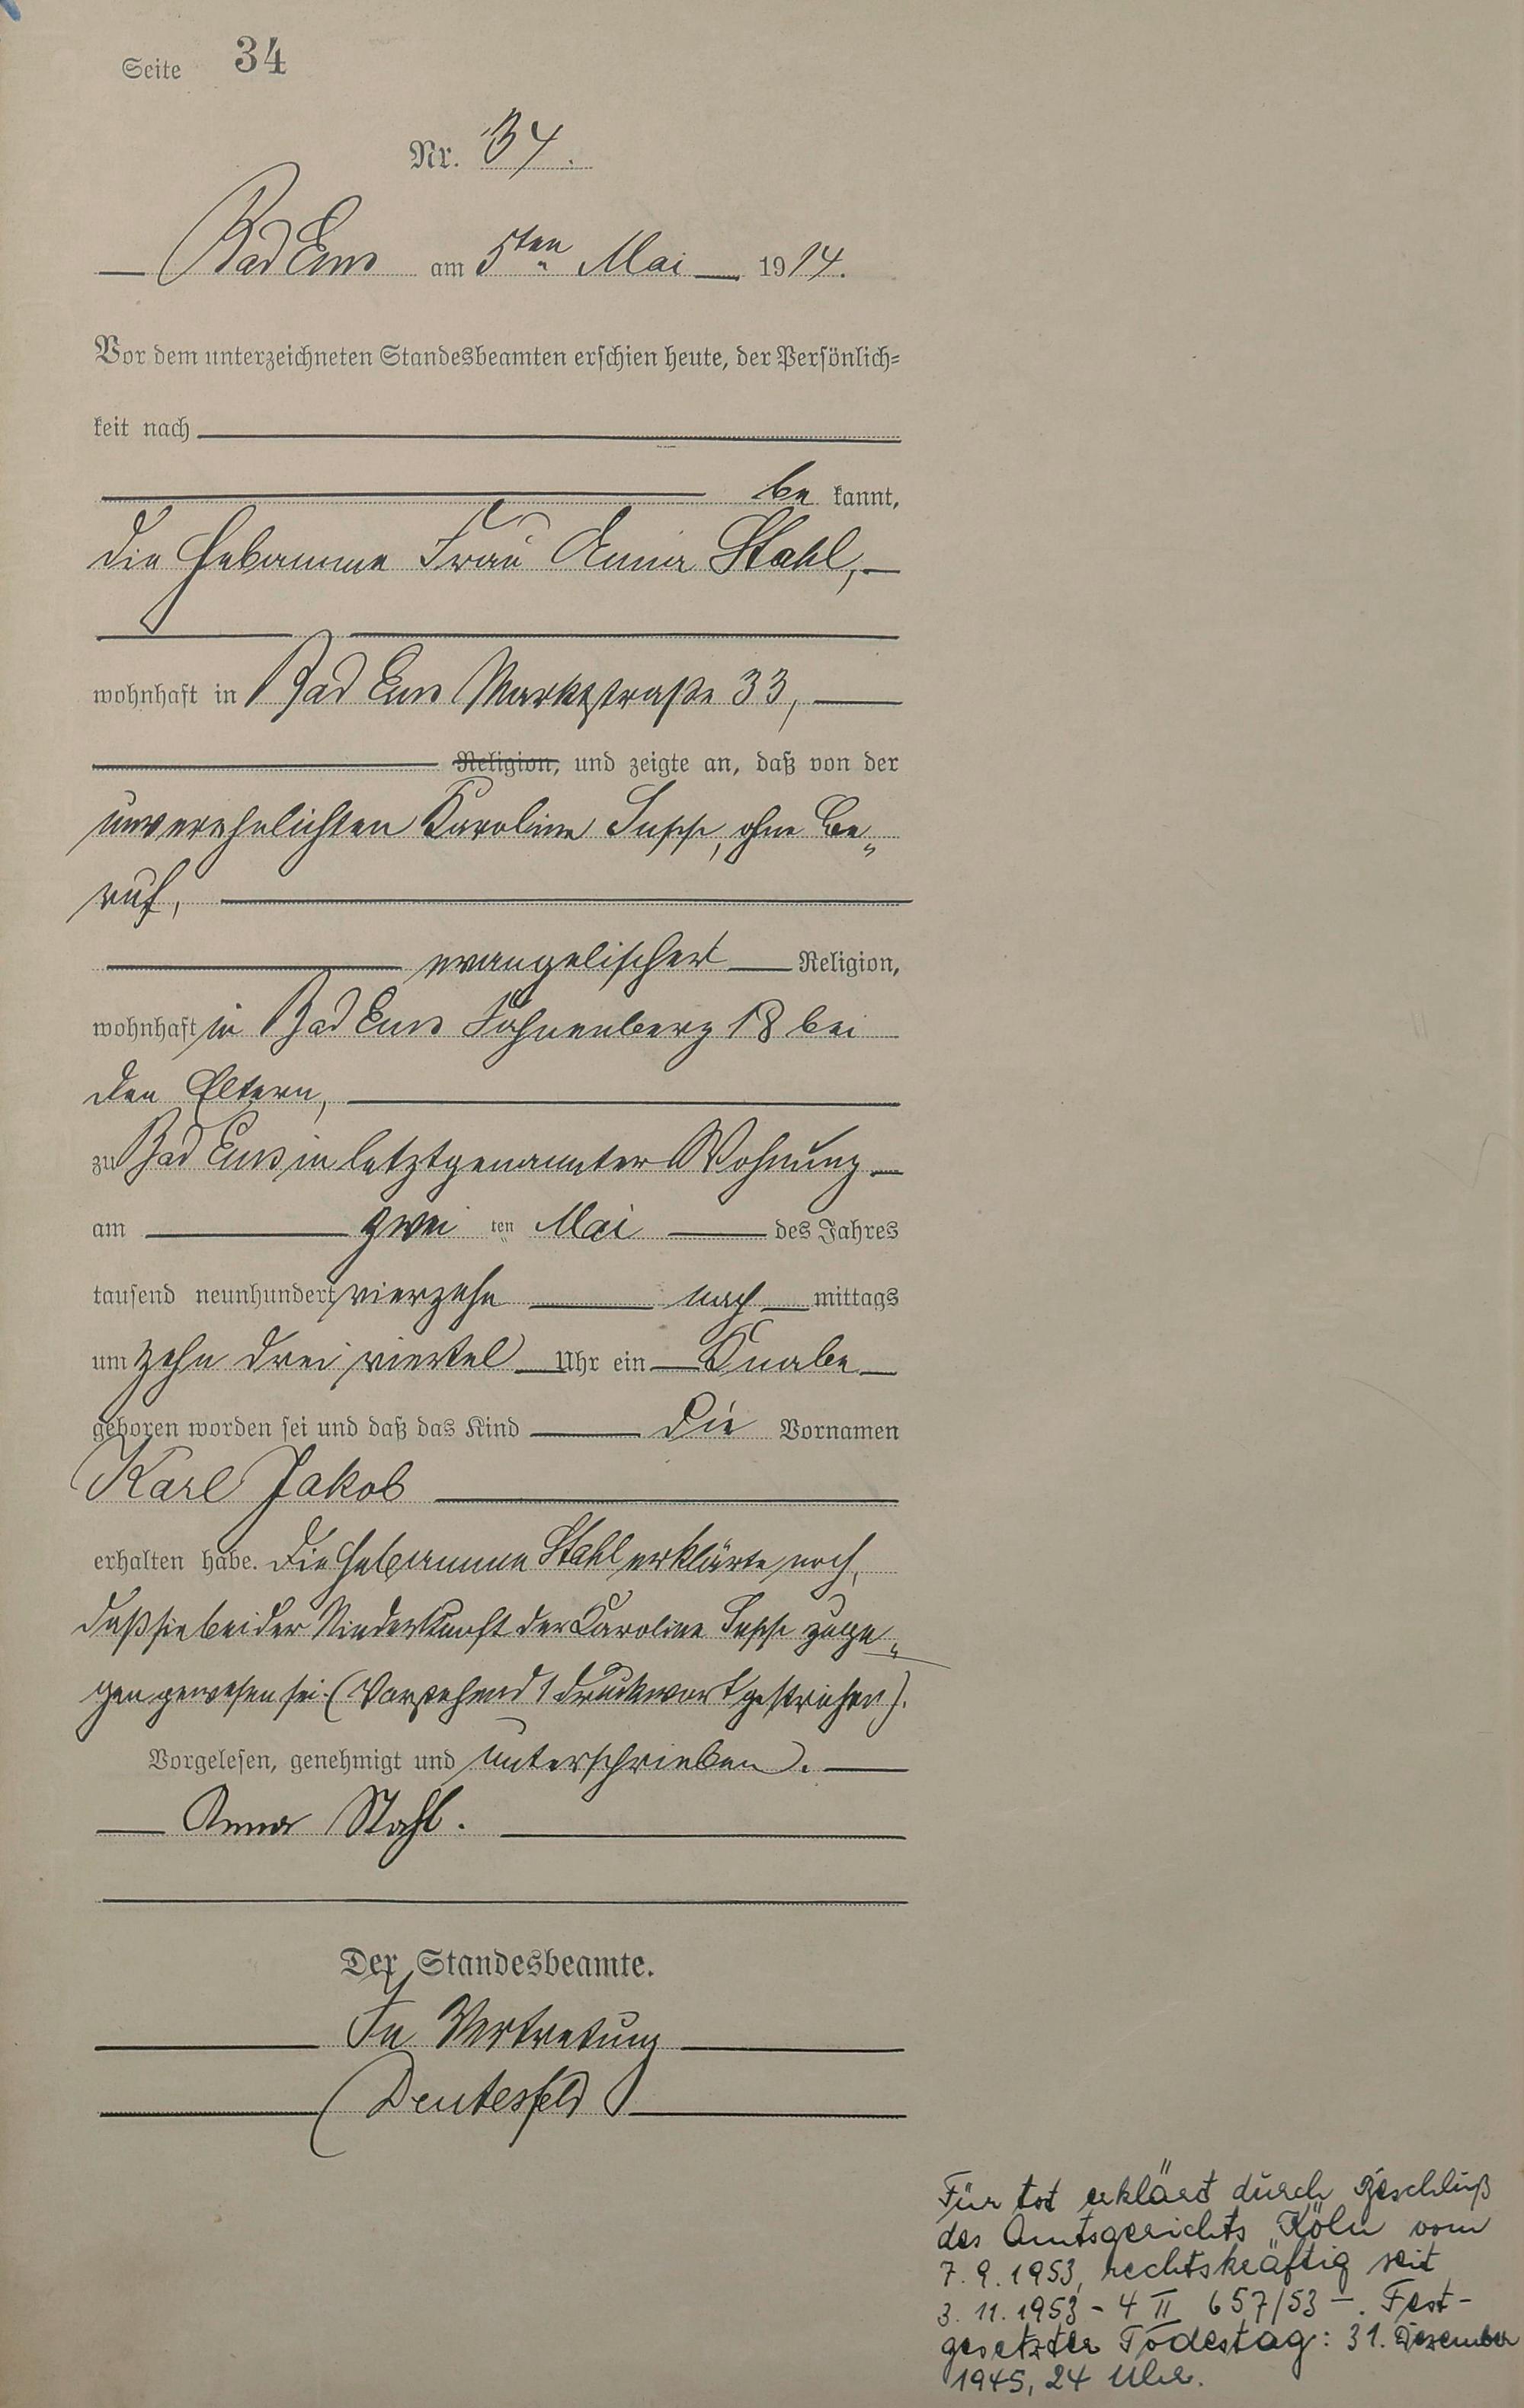 Seite 34
Nr. 34.
Bad Ems am 5ten Mai 1914.
Vor dem unterzeichneten Standesbeamten erschien heute, der Persönlich=
keit nach
be kannt,
die Hebamme Frau Anna Stahl,
wohnhaft in Bad Ems Marktstraße 33,
Religion, und zeigte an, daß von der
unverehelichten Karoline ohne Be„
ruf,
evangelischer Religion,
wohnhaft in Bad Ems 18 bei
den Eltern,
zu Bad Ems in letztgenannter Wohnung
am zwei ten Mai des Jahres
tausend neunhundert vierzehn nach mittags
um zehn drei viertel Uhr ein Knabe
geboren worden sei und daß das Kind die Vornamen
Karl Jakob
erhalten habe. Die Hebamme Stahl erklärte noch,
daß sie bei der Niederkunft der Karoline zuge„
gen gewesen sei. (Vorstehend 1 Druckwort gestrichen).
Vorgelesen, genehmigt und unterschrieben.
Anna Stahl.
Der Standesbeamte.
In Vertretung
Deutesfeld
Für tot erklärt durch Beschluß
des Amtsgerichts Köln vom
7.9.1953, rechtskräftig seit
3.11.1953 - 4 II 657/53 -. Fest-
gesetzter Todestag: 31. Dezember
1945, 24 Uhr.